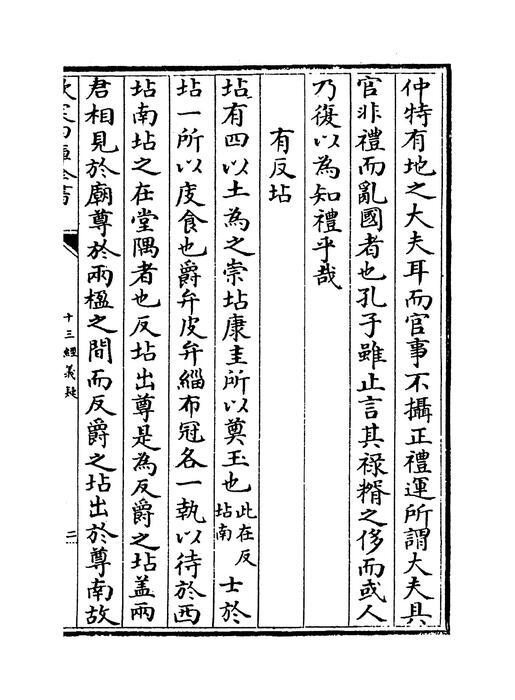 仲特有地之大夫耳而官事不攝正禮運所謂大夫具
官非禮而亂國者也孔子雖止言其祿糈之侈而或人
乃復以為知禮乎哉
有反坫
坫有四以土為之崇坫康圭所以奠玉也此在反坫南士於
坫一所以庋食也爵弁皮弁緇布冠各一執以待於西
坫南坫之在堂隅者也反坫出尊是為反爵之坫盖兩
君相見於廟尊於兩楹之間而反爵之坫出於尊南故
欽定四庫全書
十三經義疑
二